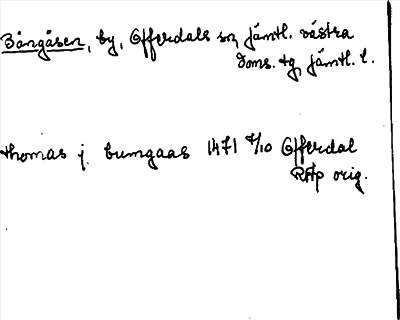 Bångåsen, by, Offerdals sn, Jämtl. västra
doms. tg, Jämtl. l.
thomas j bumgaas 1471 4/10 Offerdal
RAp orig.